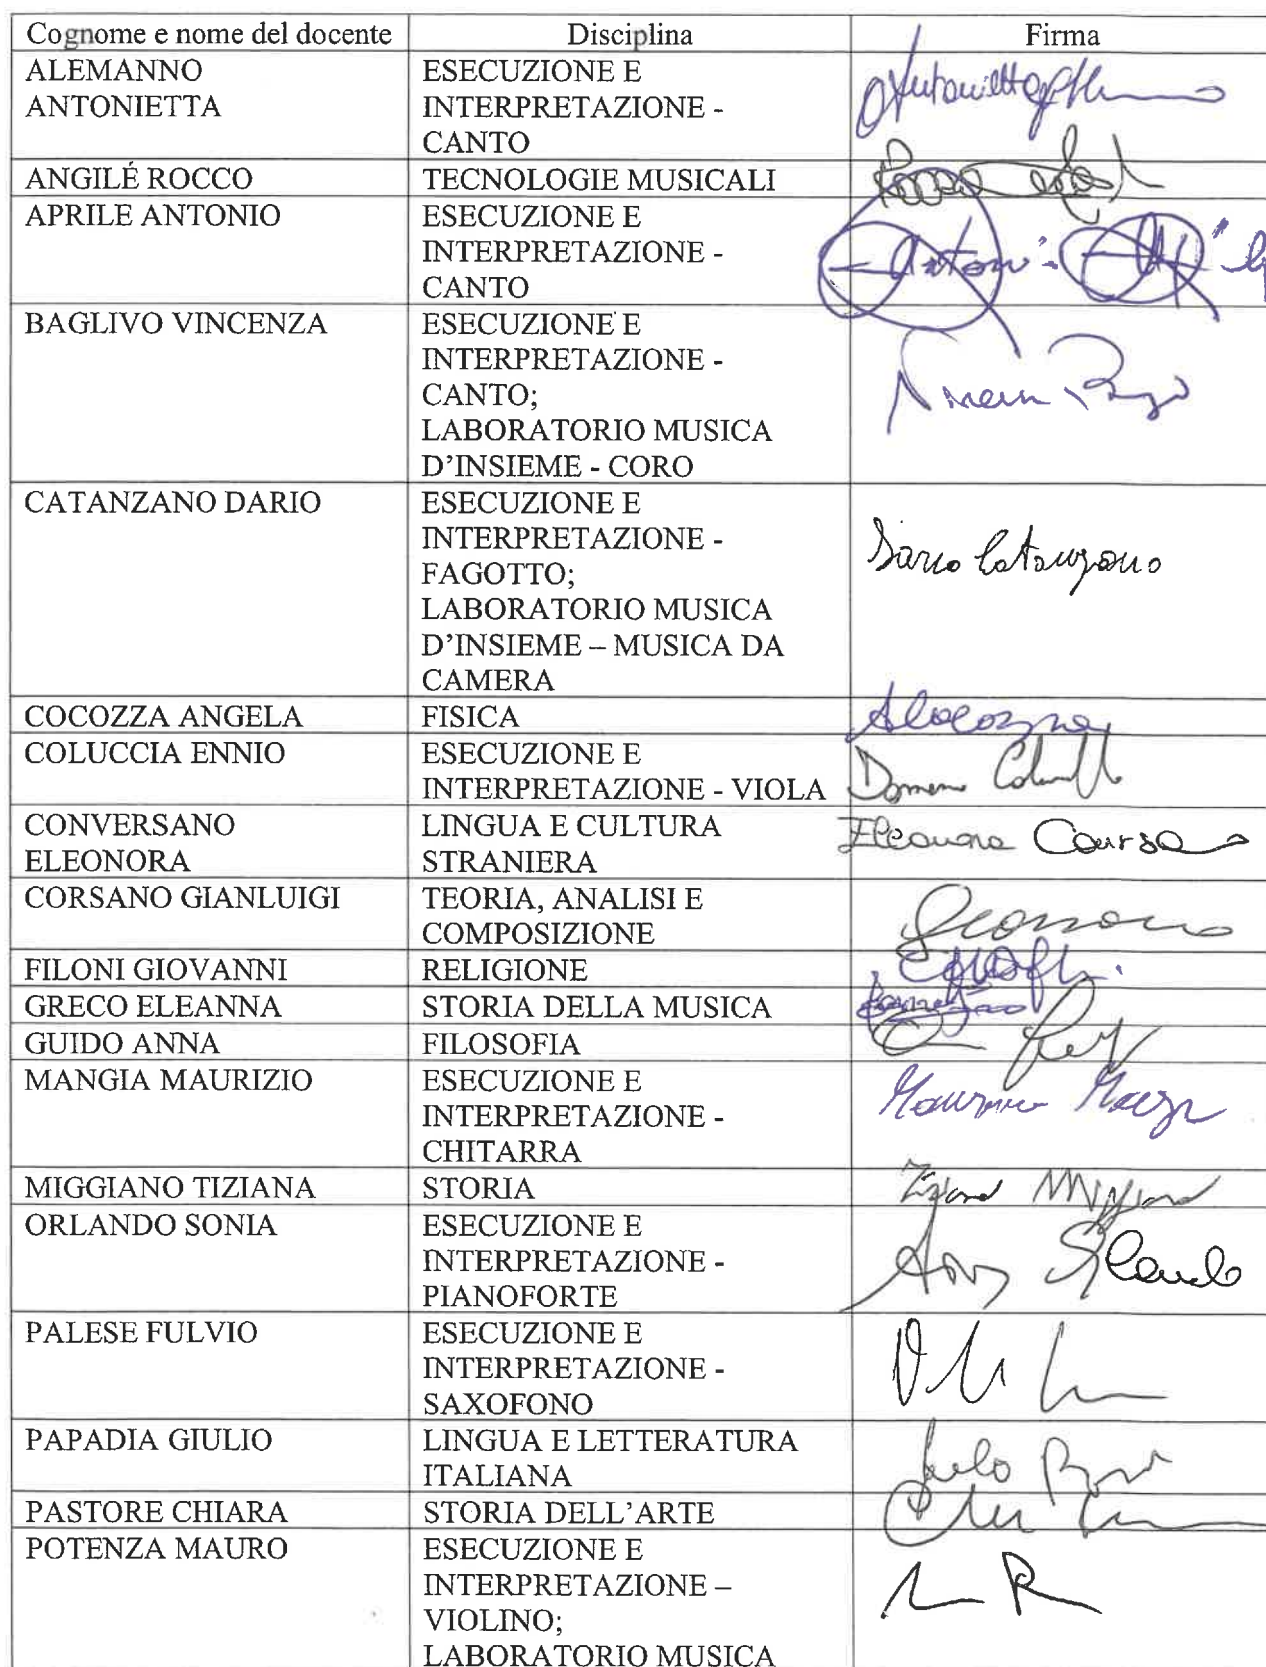 Cognome e nome del docente Disciplina Firma
ALEMANNO ESECUZIONE E
ANTONIETTA INTERPRETAZIONE -
CANTO
Antonietta
ANGILÉ ROCCO TECNOLOGIE MUSICALI
Rocco
APRILE ANTONIO ESECUZIONE E
INTERPRETAZIONE -
CANTO
Antonio
BAGLIVO VINCENZA ESECUZIONE E
INTERPRETAZIONE -
CANTO;
LABORATORIO MUSICA
D'INSIEME - CORO
CATANZANO DARIO ESECUZIONE E
INTERPRETAZIONE -
FAGOTTO;
LABORATORIO MUSICA
D'INSIEME – MUSICA DA
CAMERA
Dario Catanzano
COCOZZA ANGELA FISICA
ACocozza
COLUCCIA ENNIO ESECUZIONE E
INTERPRETAZIONE - VIOLA
CONVERSANO LINGUA E CULTURA
ELEONORA STRANIERA
Eleonora
CORSANO GIANLUIGI TEORIA, ANALISI E
COMPOSIZIONE
FILONI GIOVANNI RELIGIONE
GRECO ELEANNA STORIA DELLA MUSICA
GUIDO ANNA FILOSOFIA
MANGIA MAURIZIO ESECUZIONE E
INTERPRETAZIONE -
CHITARRA
Maurizio
MIGGIANO TIZIANA STORIA
Tiziana Miggiano
ORLANDO SONIA ESECUZIONE E
INTERPRETAZIONE -
PIANOFORTE
Orlando
PALESE FULVIO ESECUZIONE E
INTERPRETAZIONE -
SAXOFONO
PAPADIA GIULIO LINGUA E LETTERATURA
ITALIANA
PASTORE CHIARA STORIA DELL'ARTE
POTENZA MAURO ESECUZIONE E
INTERPRETAZIONE –
VIOLINO;
LABORATORIO MUSICA